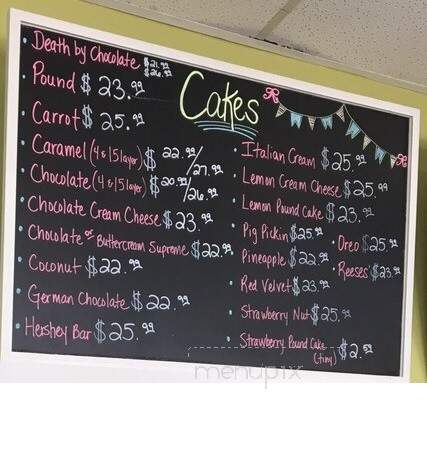 Cakes
• Death by Chocolate $21.99
$26.99
• Pound $23.99
• Carrot $25.99
• Caramel (4 & 15 layer) $22.99/27.99
• Chocolate (4 & 15 layer) $20.99/26.99
• Chocolate Cream Cheese $23.99
• Chocolate or Buttercream Supreme $22.99
• Coconut $22.99
• German Chocolate $22.99
• Hershey Bar $25.99
• Italian Cream $25.99
• Lemon Cream Cheese $25.99
• Lemon Pound Cake $23.99
• Pig Pickin $25.99
• Oreo $25.99
• Pineapple $22.99
• Reeses $23.99
• Red Velvet $23.99
• Strawberry Nut $25.99
• Strawberry Pound Cake
(tiny) $2.59
menupix